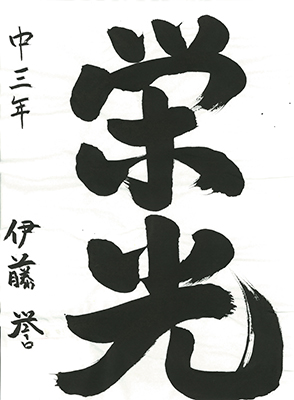 栄光
中三年
伊藤誉